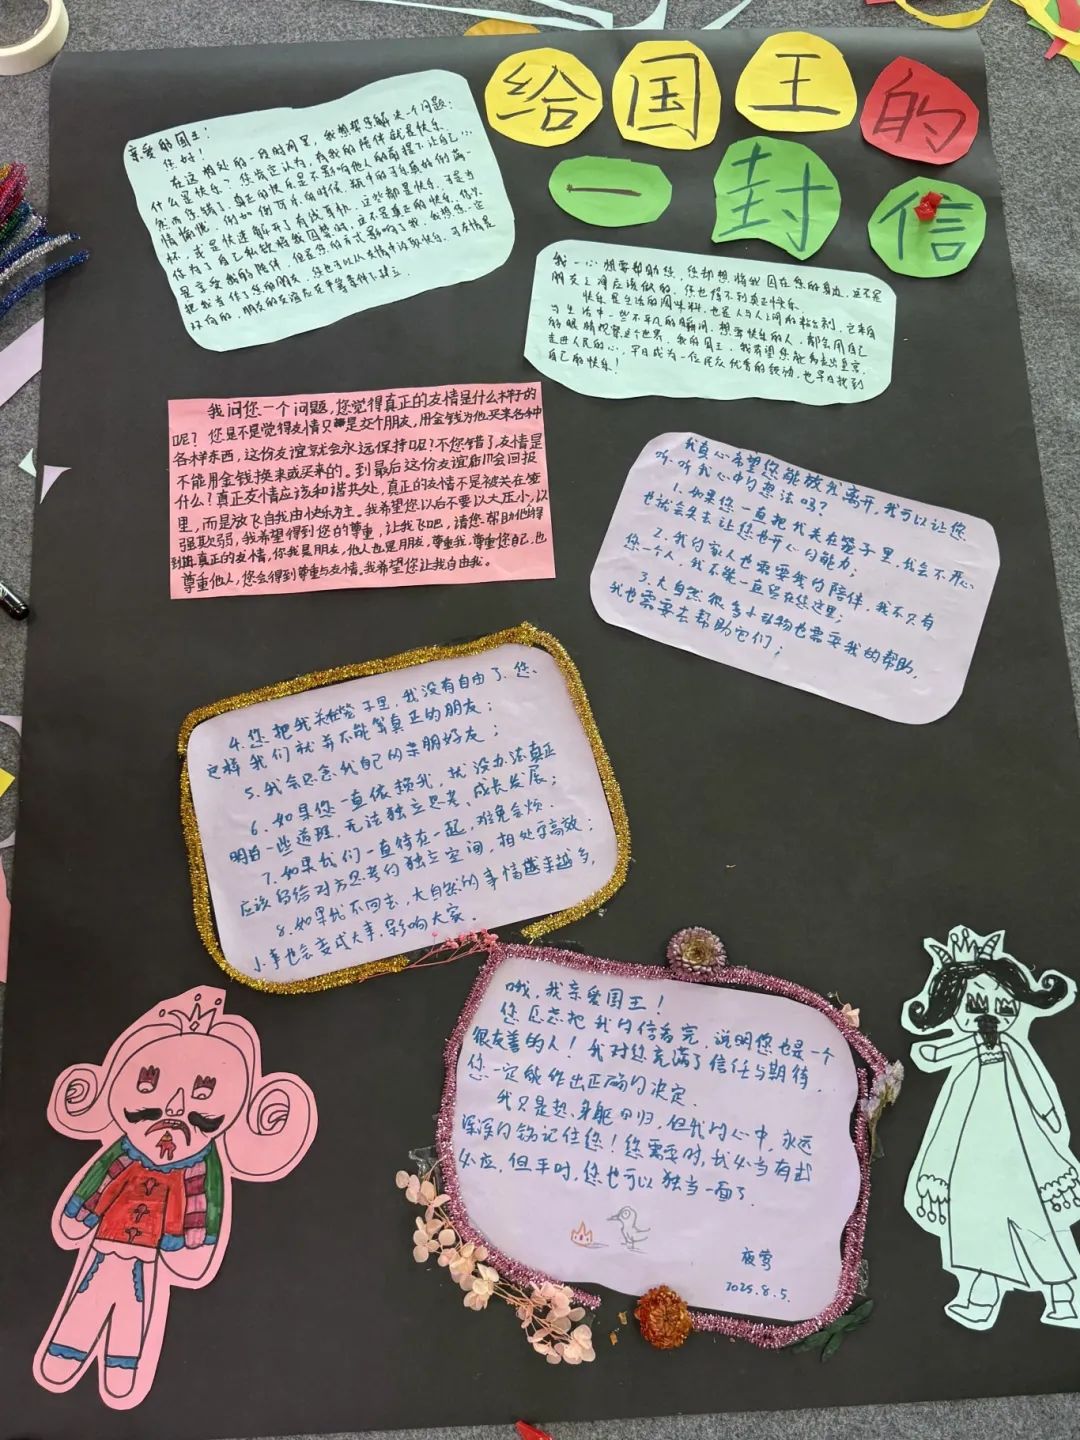 给国王的
一封信
亲爱的国王：
您好！
在这相处的一段时间里，我想帮您解决一个问题：
什么是快乐？您肯定认为，有我的陪伴就是快乐。
然而您错了，真正的快乐是不影响他人的前提下让自己心
情愉悦。例如倒
是享受我的陪伴，但是您的方式影响了我。
把我当作了您的朋友，您也可以从友情中汲取快乐，可友情是
双向的，朋友的友谊应在平等条件下建立。
我一心想要帮助您，您却想将我困在您的身边，这不是
朋友之间应该做的，您也得不到真正快乐。
快乐是生活的调味料，也是人与人之间的粘合剂，它来自
于生活中一些不平凡的瞬间，想要快乐的人，都会用自己
的眼睛观察这个世界，我的国王，我希望您能够走出皇宫，
走进人民的心，早日成为一位民众优秀的领袖，也早日找到
自己的快乐！
我问您一个问题，您觉得真正的友情是什么样子的
呢？您是不是觉得友情只是交个朋友，用金钱为他买来各种
各样东西，这份友谊就会永远保持呢？不您错了，友情是
不能用金钱换来或买来的。到最后这份友谊们会回报
什么？真正友情应该和谐共处，真正的友情不是被关在笼
里，而是放飞自我由快乐为主。我希望您以后不要以大压小，以
强欺弱，我希望得到您的尊重，让我飞吧，请您帮助他得
到真正的友情，你我是朋友，他人也是朋友，尊重我，尊重您自己，也
尊重他人，您会得到尊重与友情。我希望您让我自由我。
我真心希望您能放我离开，我可以让您
听听我心中的想法吗？
1.如果您一直把我关在笼子里，我会不开心
也就会失去让您也开心的能力；
2.我的家人也需要我的陪伴，我不只有
您一个人，我不能一直留在您这里；
3.大自然很多小动物也需要我的帮助，
我也需要去帮助它们；
4.您把我关在笼子里，我没有自由了，您、
这样我们就并不能算真正的朋友；
5.我会思念我自己的亲朋好友；
6.如果您一直依赖我，就没办法真正
明白一些道理，无法独立思考、成长发展；
7.如果我们一直待在一起，难免会烦，
应该留给对方思考的独立空间，相处高效；
8.如果我不回去，大自然的事情越来越多，
小事也会变成大事，影响大家。
哦，我亲爱国王！
您愿意把我的信看完，说明您也是一个
很友善的人！我对您充满了信任与期待，
您一定能作出正确的决定。
我只是想身躯回归，但我的心中，永远
深深的铭记住您！您需要时，我必当有求
必应，但平时，您也可以独当一面了。
夜莺
2025.8.5.